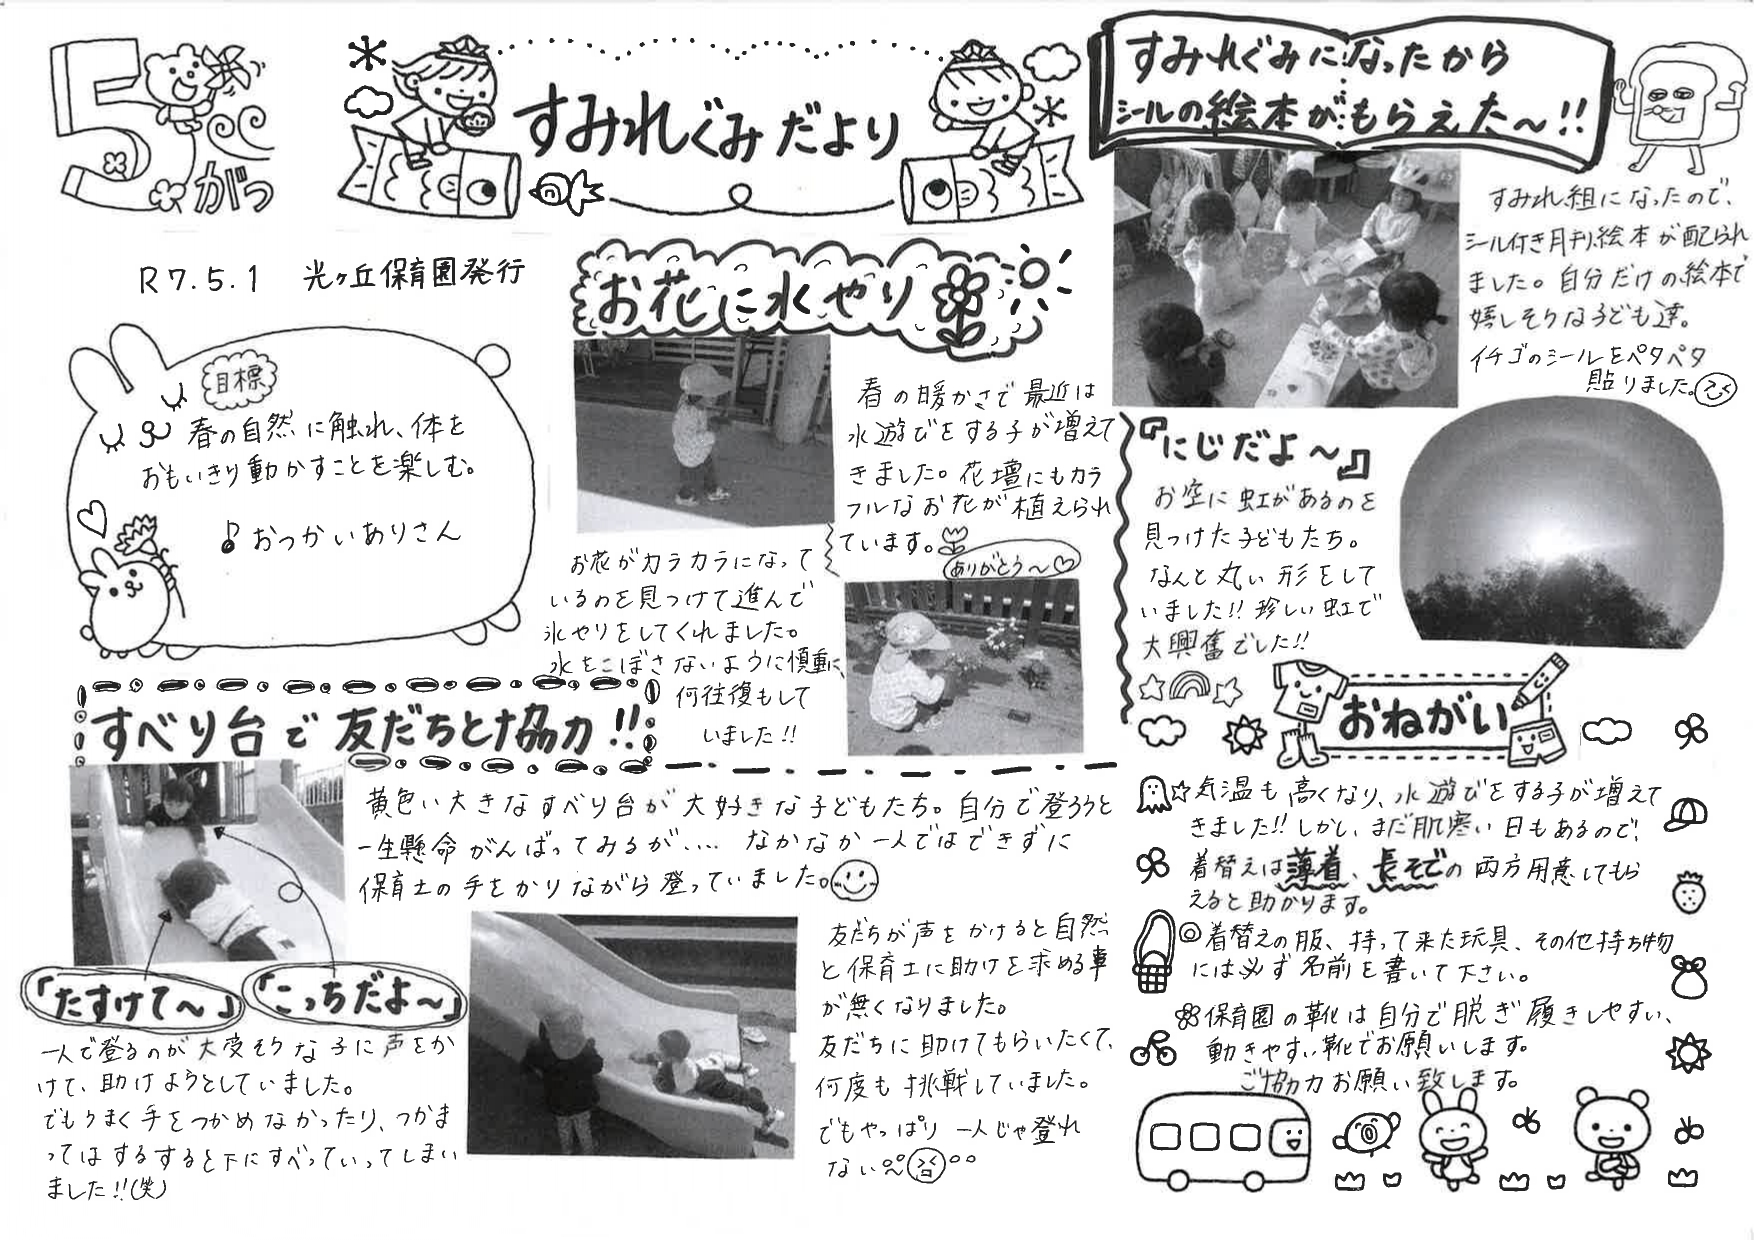 5がつ
すみれぐみだより
R7.5.1 光ヶ丘保育園発行
目標
春の自然に触れ、体を
おもいきり動かすことを楽しむ。
♪おつかいありさん
お花に水やり
春の暖かさで最近は
水遊びをする子が増えて
きました。花壇にもカラ
フルなお花が植えられ
ています。
ありがとう～♡
お花がカラカラになって
いるのを見つけて進んで
水やりをしてくれました。
水をこぼさないように慎重に、
何往復もして
いました!!
すみれぐみになったから
シールの絵本がもらえた～!!
すみれ組になったので、
シール付き月刊絵本が配られ
ました。自分だけの絵本で
嬉しそうな子ども達。
イチゴのシールをペタペタ
貼りました。
『にじだよ～』
お空に虹があるのを
見つけた子どもたち。
なんと丸い形をして
いました!!珍しい虹で
大興奮でした!!
すべり台で友だちと協力!!
黄色い大きなすべり台が大好きな子どもたち。自分で登ろうと
一生懸命がんばってみるが….なかなか一人ではできずに
保育士の手をかりながら登っていました。
「たすけて～」
「こっちだよ～」
一人で登るのが大変そうな子に声をか
けて、助けようとしていました。
でもうまく手をつかめなかったり、つかま
ってはするすると下にすべっていってしまい
ました!!(笑)
友だちが声をかけると自然
と保育士に助けを求める事
が無くなりました。
友だちに助けてもらいたくて、
何度も挑戦していました。
でもやっぱり一人じゃ登れ
ない
おねがい
☆気温も高くなり、水遊びをする子が増えて
きました!!しかし、まだ肌寒い日もあるので、
着替えは薄着、長そでの両方用意してもら
えると助かります。
◎着替えの服、持って来た玩具、その他持ち物
には必ず名前を書いて下さい。
保育園の靴は自分で脱ぎ履きしやすい、
動きやすい靴でお願いします。
ご協力お願い致します。